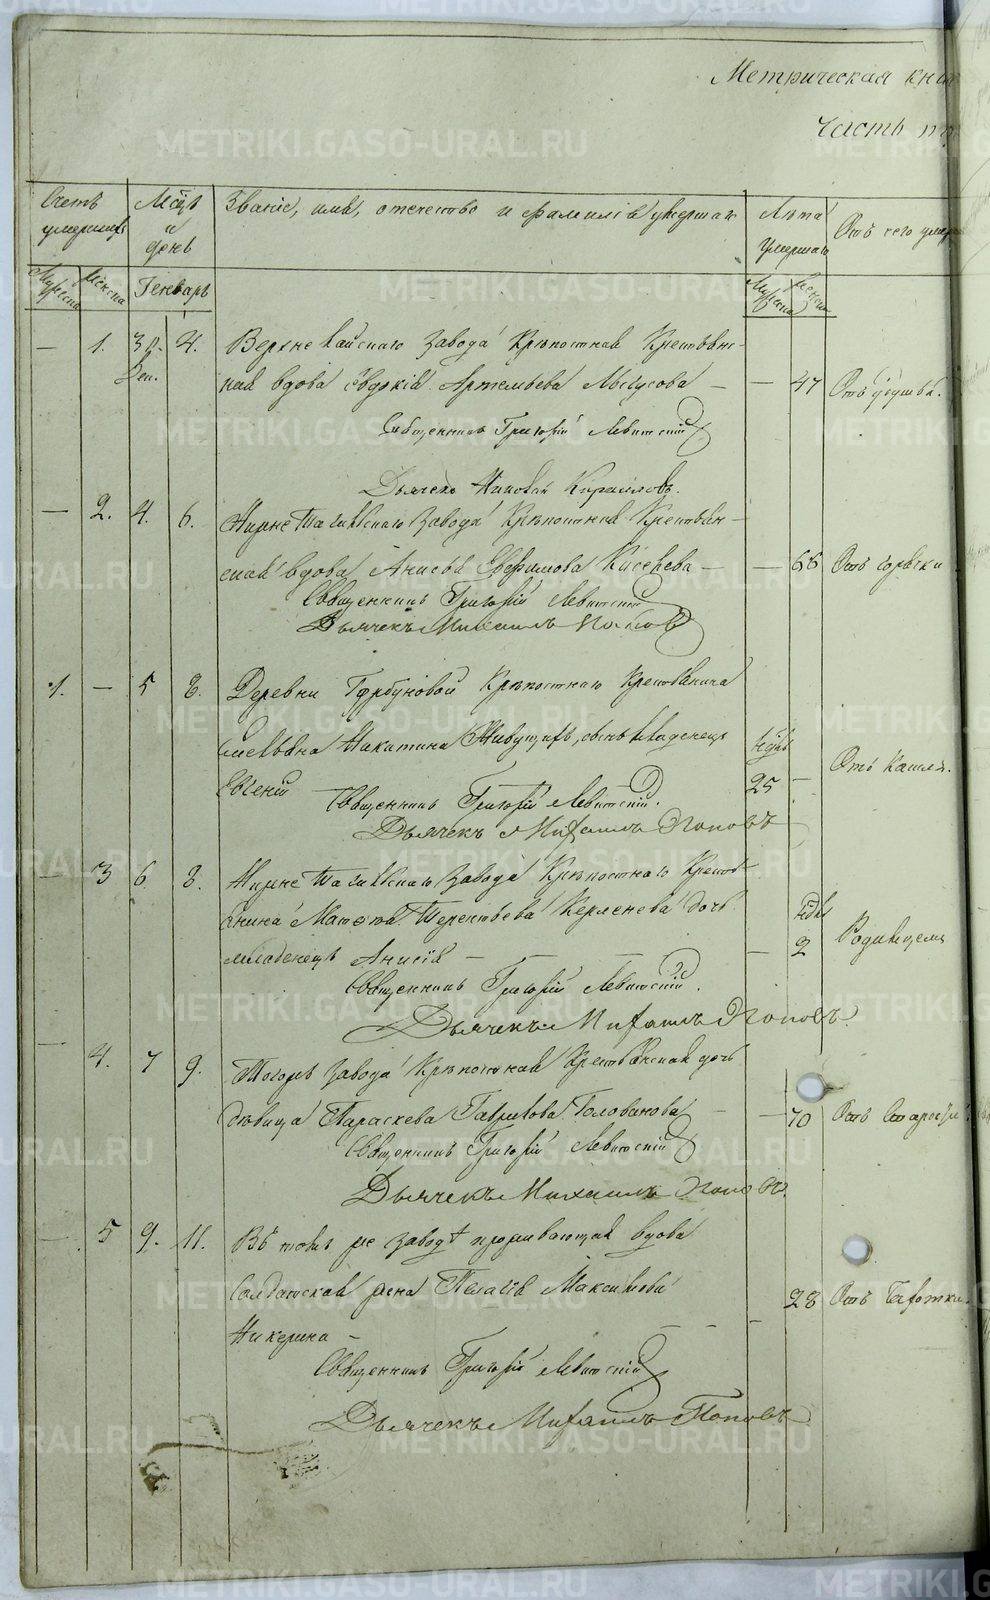 Метрическая кни
Часть тр
Счетъ умершихъ
Мсцъ и день
Званіе, имя, отечество и фамилія умершаго
Лѣта умершаго
Отъ чего умер
Мужеска
Женска
Генварь
Мужеска
Женска
— 1. 4. Верхне завода Крѣпостная Крестьян-
Дек.
ская вдова Евдокія Артемьева — — 47 Отъ
Священникъ Григорій Левитскій
Дьячекъ Николай Кириловъ.
— 2. 4. 6. Нижне Тагильскаго завода Крѣпостная Крестьян-
ская вдова Анисья Ефимова Киселева — — Отъ горячки
Священникъ Григорій Левитскій
Дьячекъ Михаилъ Поповъ
1. — 5 8. Деревни Горбуновой Крѣпостнаго Крестьянина
Никитина сынъ младенецъ ндль
Евгеній 25 — Отъ кашля.
Священникъ Григорій Левитскій.
Дьячекъ Михаилъ Поповъ
— 3 6 8. Нижне Тагильскаго завода Крѣпостнаго Кресть-
янина Матвѣя Терентьева дочь ндль
младенецъ Анисія — — — 2 Родимцемъ
Священникъ Григорій Левитскій.
Дьячекъ Михаилъ Поповъ.
— 4. 7 9. Тогожъ завода Крѣпостная Крестьянская дочь
дѣвица Параскева Гаврилова Голованова — — 70 Отъ старости
Священникъ Григорій Левитскій
Дьячекъ Михаилъ Поповъ.
— 5 9. 11. Въ томъ же заводѣ проживающая вдова
солдатская жена Пелагія Максимова 28 Отъ Чахотки.
Никерина —
Священникъ Григорій Левитскій
Дьячекъ Михаилъ Поповъ
METRIKI.GASO-URAL.RU